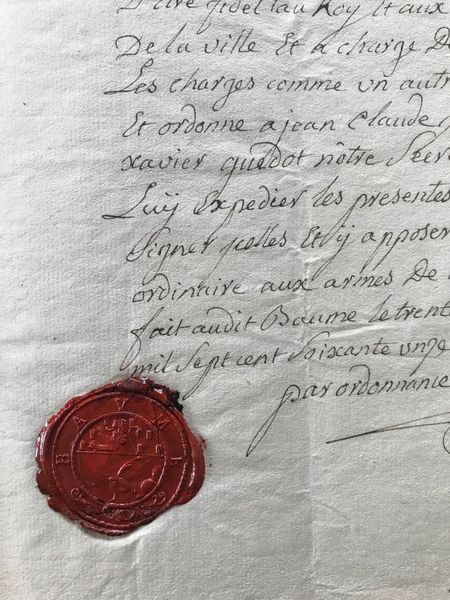 D'être fidel au Roy Et aux
De la ville Et a charge De
Les charges comme vn autr
Et ordonne a jean Claude
xavier guedot nôtre Secr
Luÿ Expedier les presentes
Signer jcelles Et ÿ apposer
ordinaire aux armes De
fait audit Baume le trent
mil Sept cent Soixante vnze
par ordonnance
BAVME